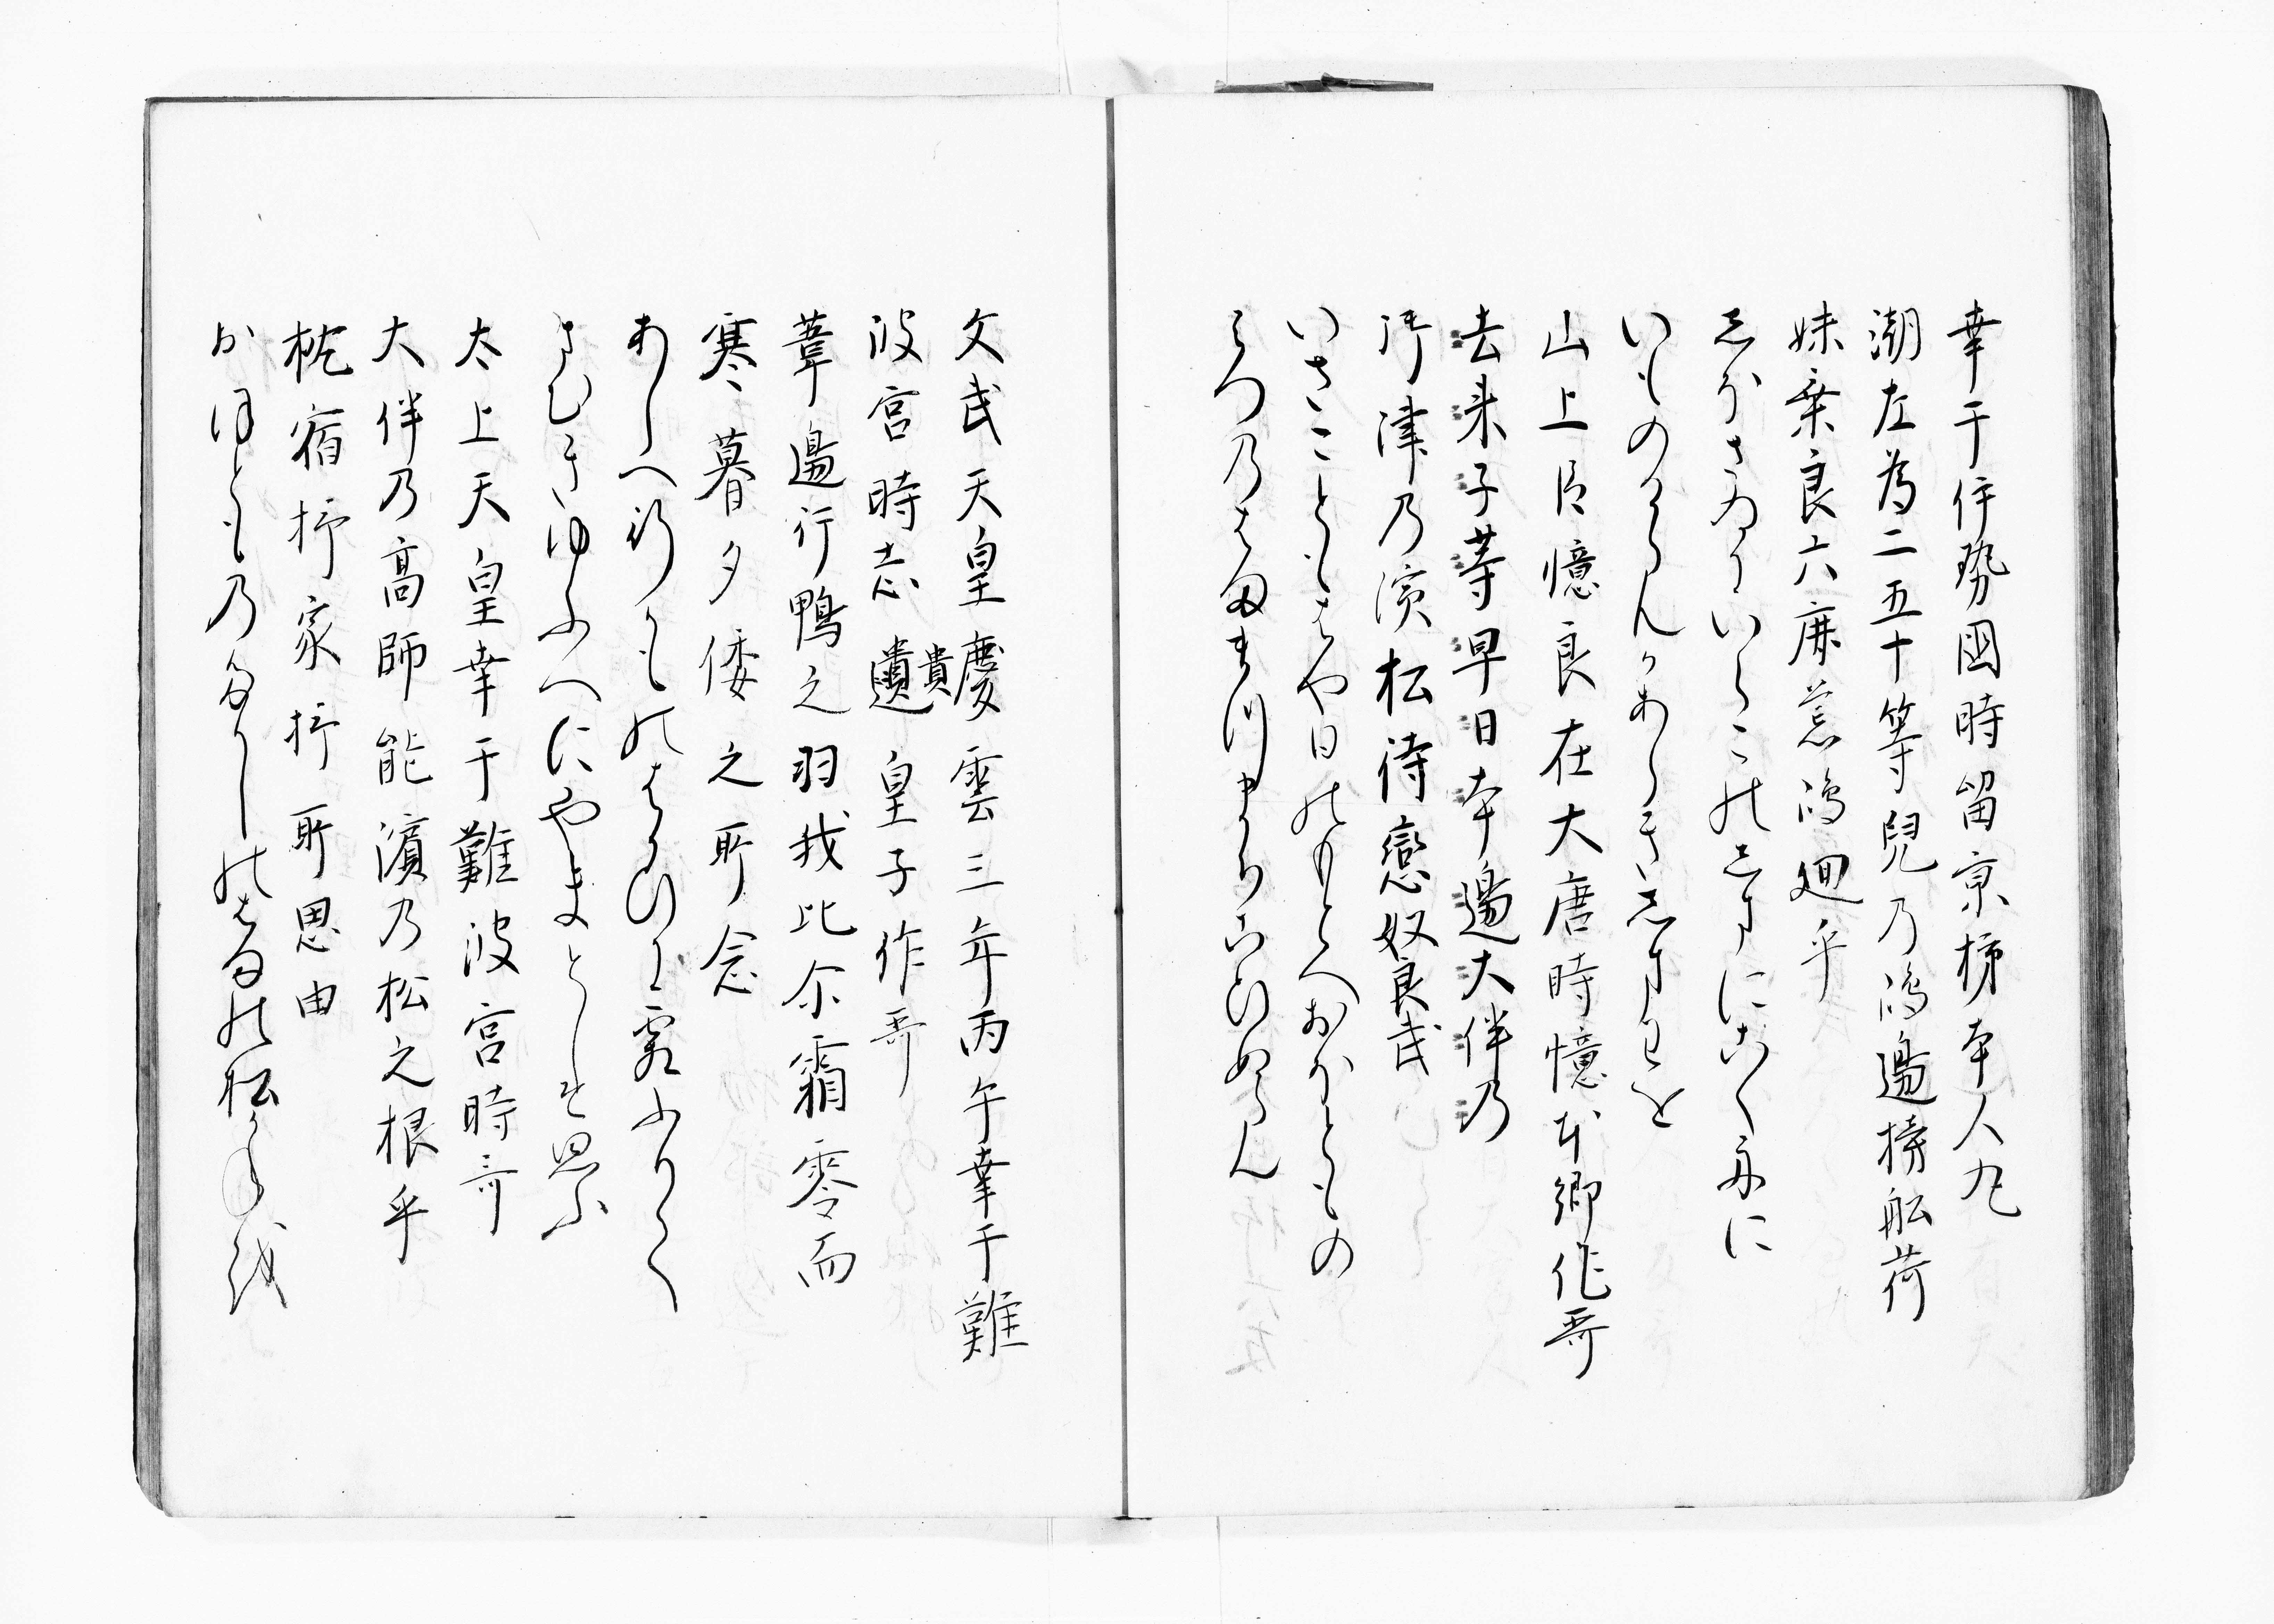 幸于伊勢國時留京柹本人丸
潮左為二五十等兒乃嶋邊榜舩荷
妹乗良六鹿荒嶋廻乎
志ほさゐにいらこのしまにこく舟に
いものるらんかあらきしまわを
山上臣憶良在大唐時憶本郷作哥
去来子等早日本邊大伴乃
御津乃濱松待戀奴良武
いさことも者や日のもとへおほともの
みつ乃者ま末川まちこひぬらん
文武天皇慶雲三年丙午幸于難
波宮時志遺皇子作哥
貴
葦邊行鴨之羽我比尓霜零而
寒暮夕倭之所念
あしへ行かものはかひに霜ふりて
さむきゆふへにやまとしそ思ふ
太上天皇幸于難波宮時哥
大伴乃高師能濱乃松之根乎
枕宿杼家杼所思由
おほとも乃多かしのはまの松かねを